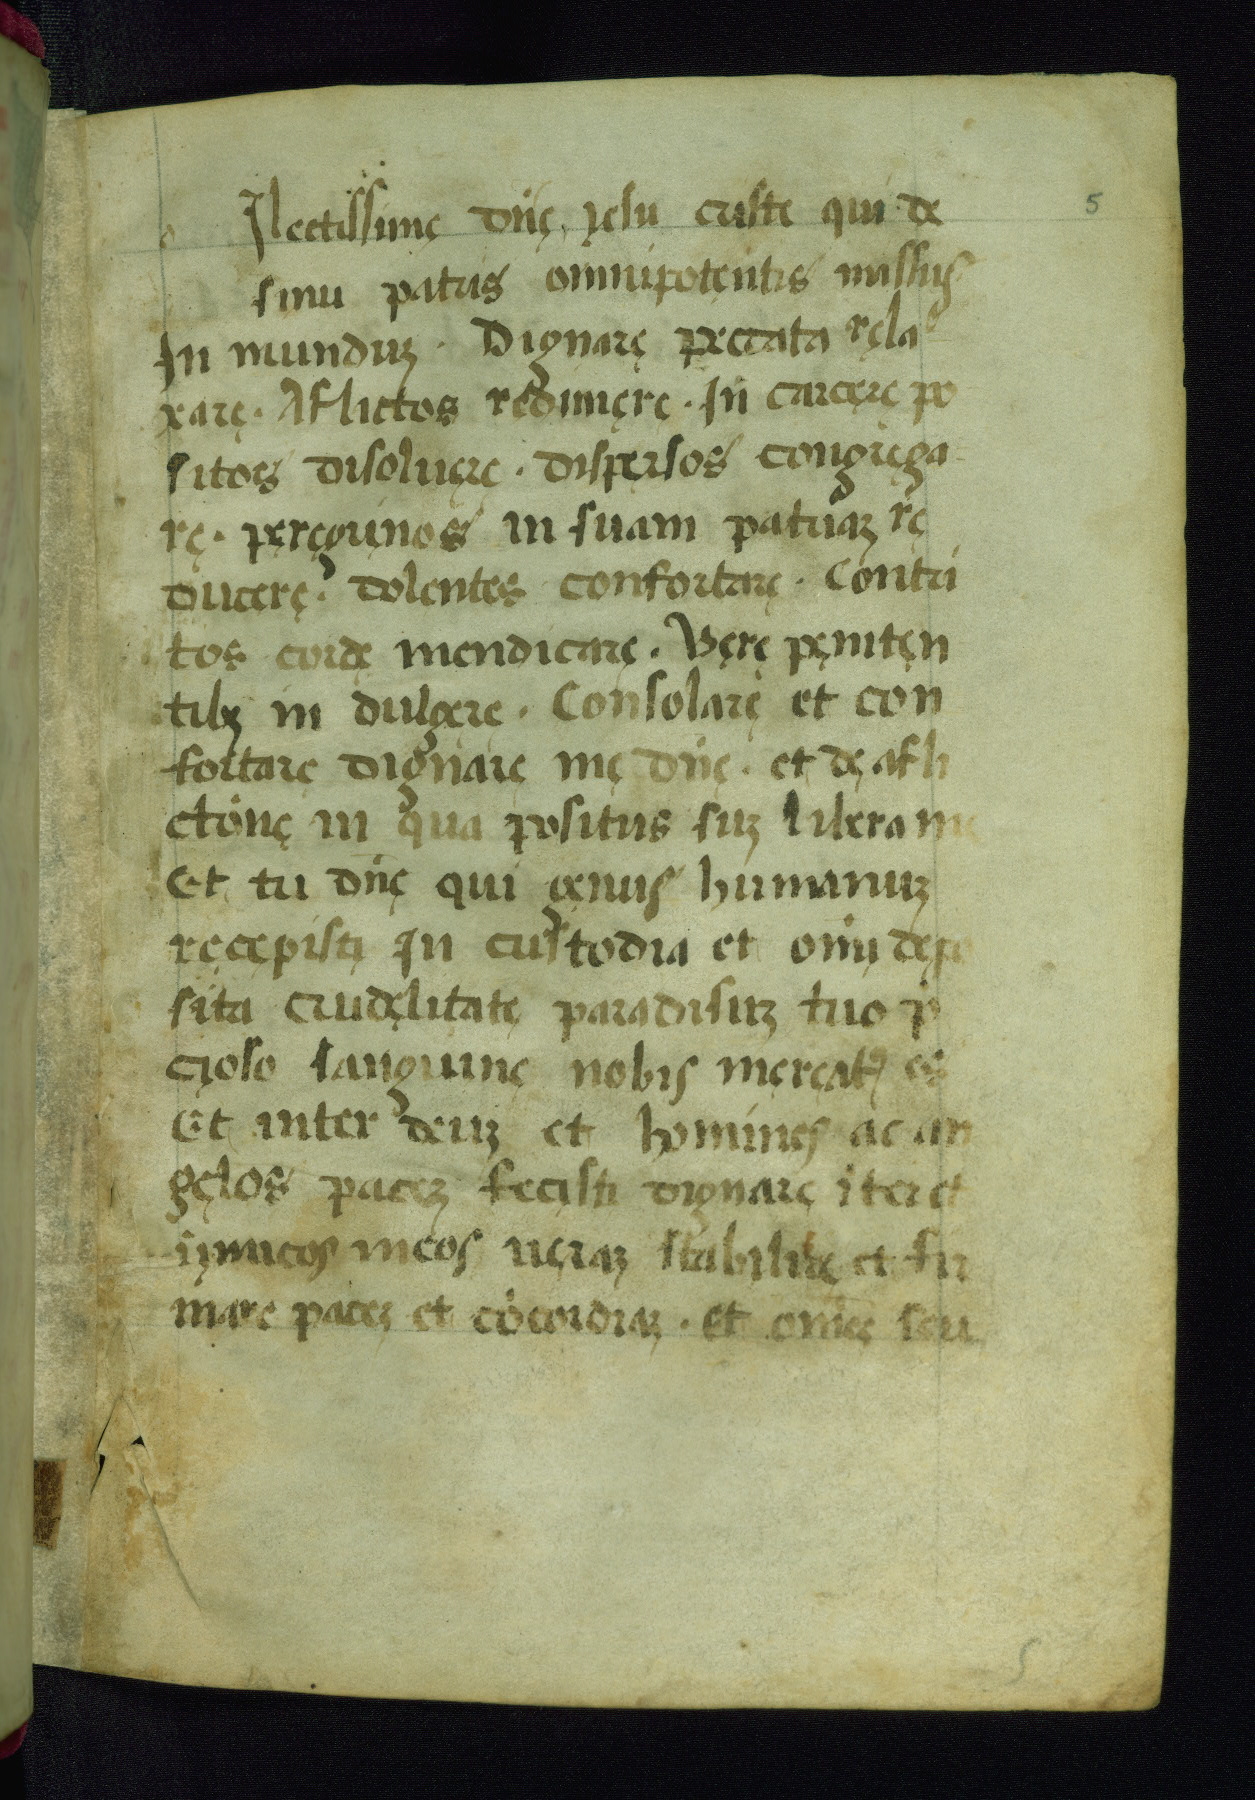 Ilectissimę dn̄ę yęsu criste qui de
sinu patris omnipotentis missus
In munduȝ. Dignarę peccata ręla
xarę. Aflictos redimęrę. In carcęrę po
sitos disoluęrę. dispersos congręga
rę. pęręgrinos in suam patriaȝ rę
ducerę. dolentes confortarę. Contri
tos cordę mendicarę. Vęrę pęnitęn
tibȝ in dulgere. Consolarę et con
fortarę dignarę mę dn̄ę. et dę afli
ctōnę in qua positus suȝ libera me
Et tu dn̄ę qui genus humanuȝ
ręcępisti In custodia et om̄i dępo
sita crudęlitatę paradisuȝ tuo p̄
cioso sanguinę nobis męrcatꝰ es
Et inter deuȝ et homines ac an
gęlos paceȝ fecisti dignarę īter et
īimicos meos uęraȝ stabilirę et fir
mare paceȝ et cōcordiaȝ. et om̄eȝ seu
5